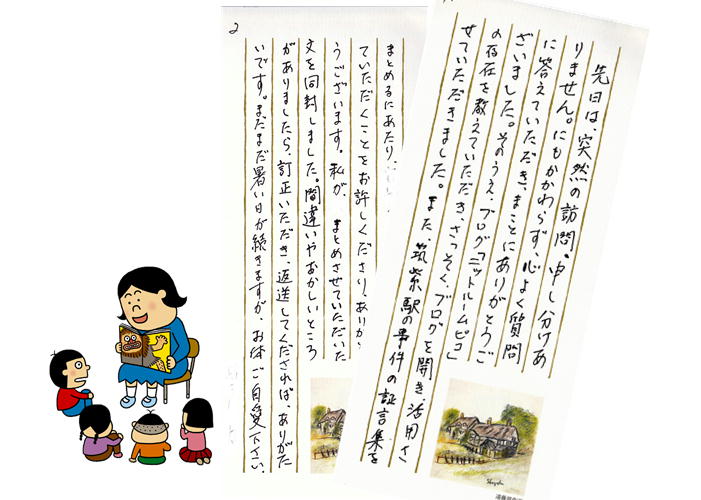 先日は、突然の訪問、申し分けあ
りません。にもかかわらず、心よく質問
に答えていただき、まことにありがとうご
ざいました。そのうえ、ブログ「ニットルームピコ」
の存在を教えていただき、さっそく、ブログを開き、活用さ
せていただきました。また、筑紫駅の事件の証言集を
2
まとめるにあたり、
ていただくことをお許しくださり、ありがと
うございます。私が、まとめさせていただいた
文を同封しました。間違いやおかしいところ
がありましたら、訂正いただき、返送してくだされば、ありがた
いです。まだまだ暑い日が続きますが、お体ご自愛下さい。